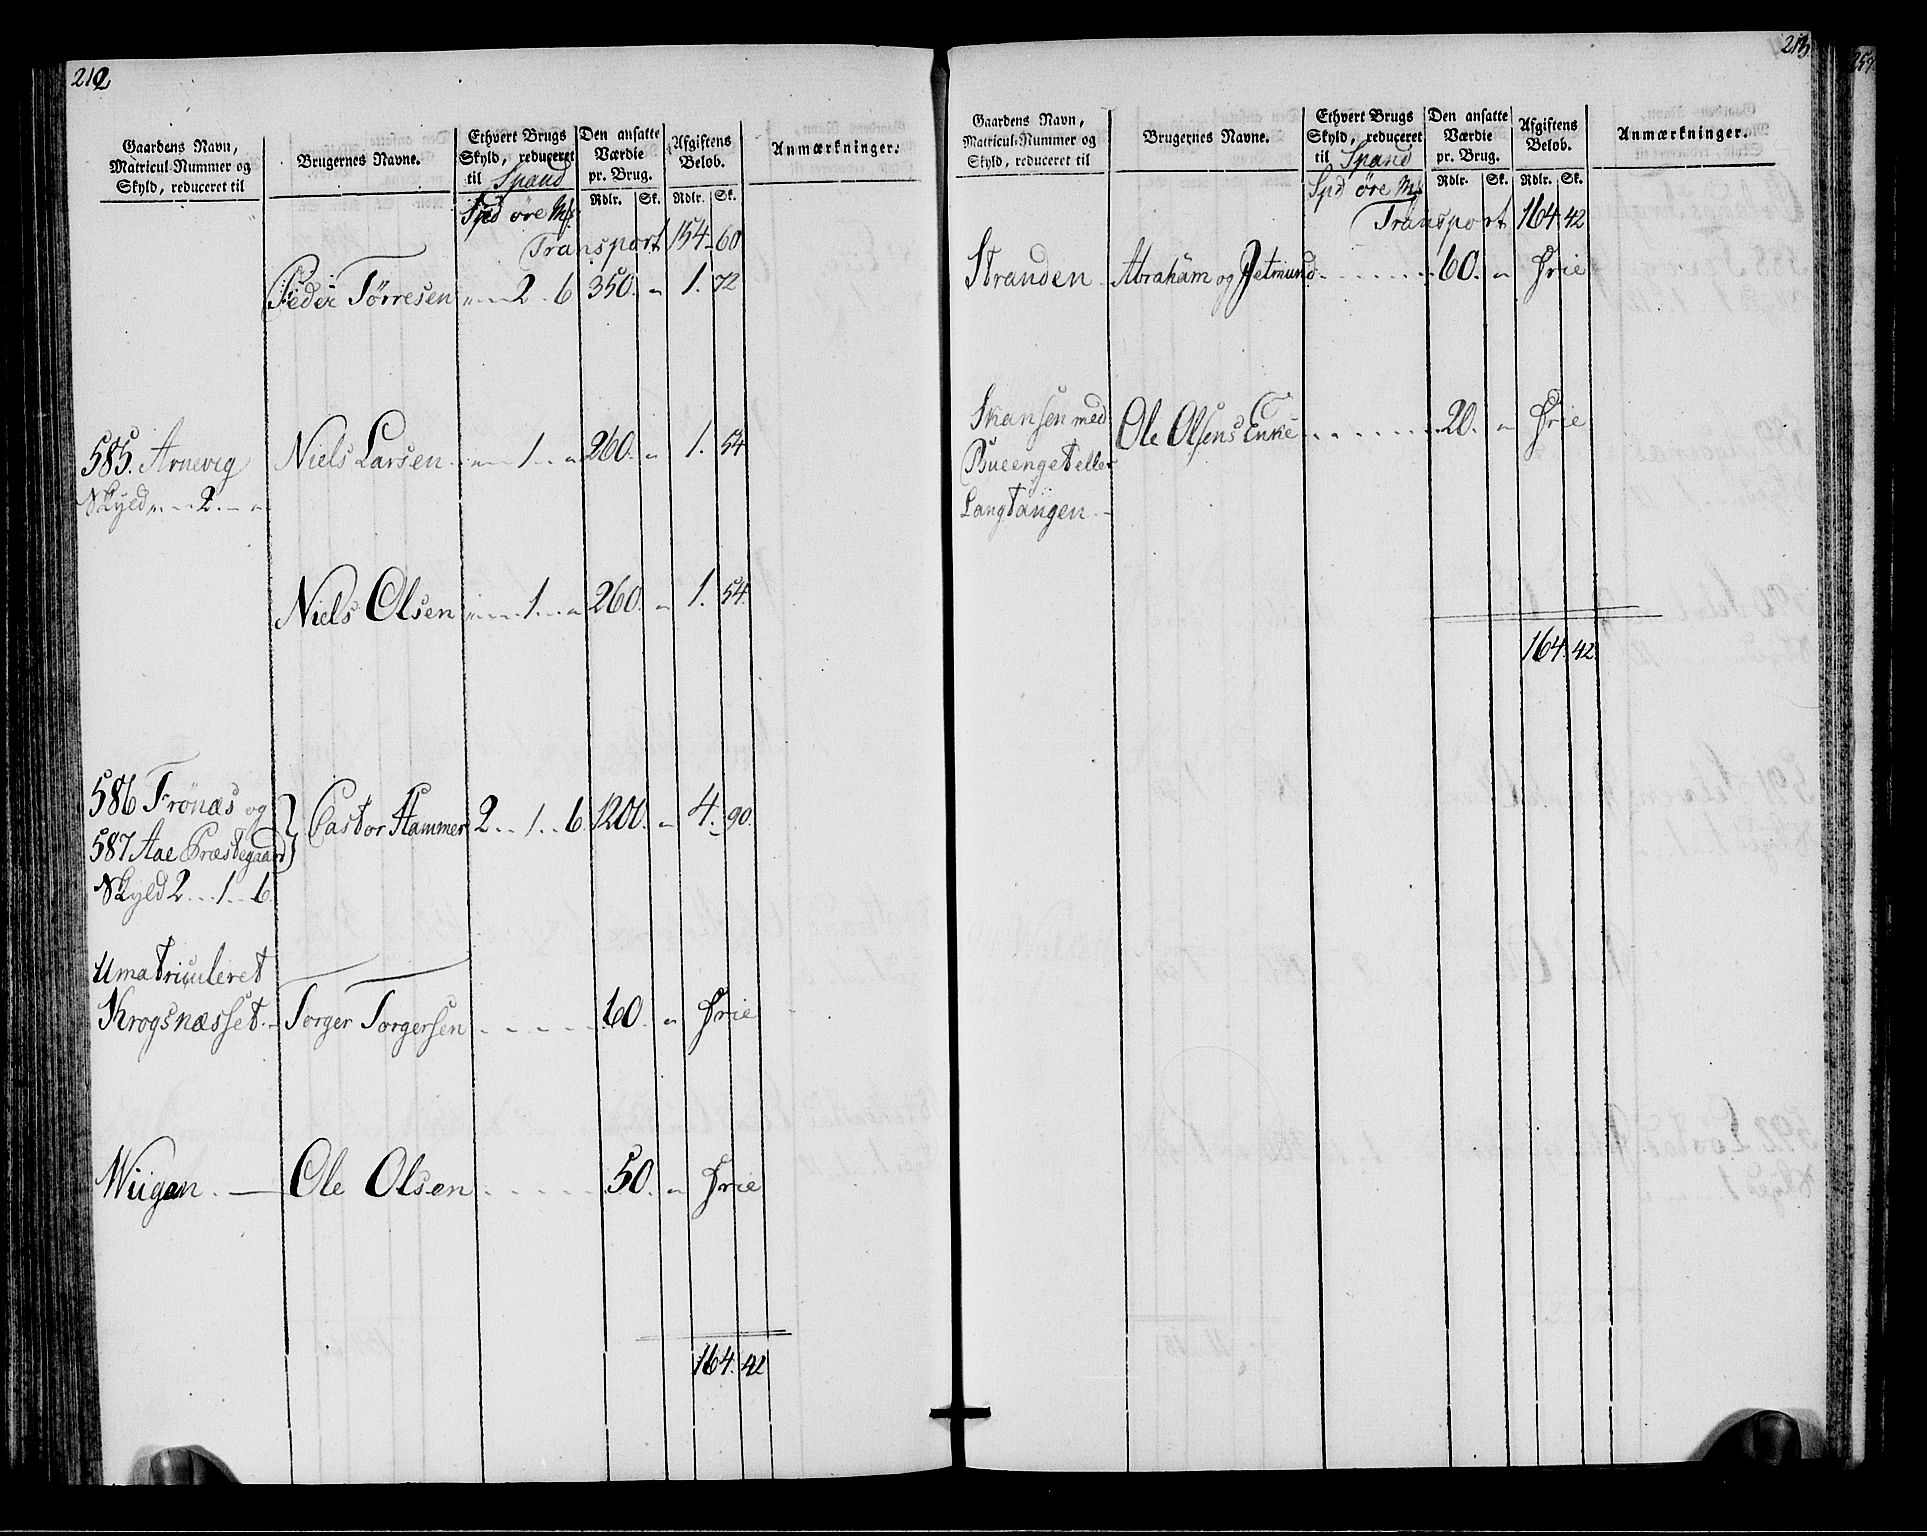 212
Gaardens Navn, Matricul-Nummer og Skyld, reduceret til | Brugernes Navne. | Ethvert Brugs Skyld, reduceret til Spand | Den ansatte Værdie pr. Brug. | Afgiftens Beløb. | Anmærkninger.
Spd øre Mf: | Rdlr. Sk. | Rdlr. Sk.
Transport 154. 60
Peder Törresen " 2 . 6 350. " 1. 72
585. Arnevig Niels Larsen " 1 . " 260. " 1. 54
Skyld " 2 . "
Niels Olsen " 1 . " 260. " 1. 54.
586 Frönæs og
587 Aae Præstegaard } Pastor Hammer 2 . 1 . 6 1200. " 4. 90.
Skyld 2 . 1 . 6
Umatriculeret
Krogsnæsset. Torger Torgersen 60. " frie
Wiigen. Ole Olsen 50. " frie
164. 42
213
Gaardens Navn, Matricul-Nummer og Skyld, reduceret til | Brugernes Navne. | Ethvert Brugs Skyld, reduceret til Spand | Den ansatte Værdie pr. Brug. | Afgiftens Beløb. | Anmærkninger.
Spd öre Mf | Rdlr. Sk. | Rdlr. Sk.
Transport 164. 42
Stranden Abraham og Jetmund 60. " frie
Skansen med Ole Olsens Enke 20. " frie
Bueenget eller
Langtangen.
164. 42.